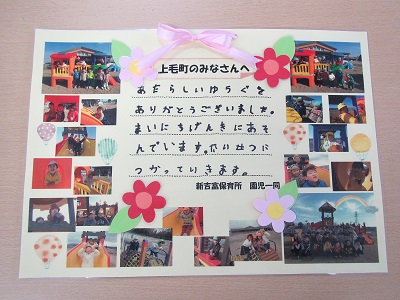 上毛町のみなさんへ
あたらしいゆうぐを
ありがとうございました。
まいにちげんきにあそ
んでいます。たいせつに
つかっていきます。
新吉富保育所　園児一同